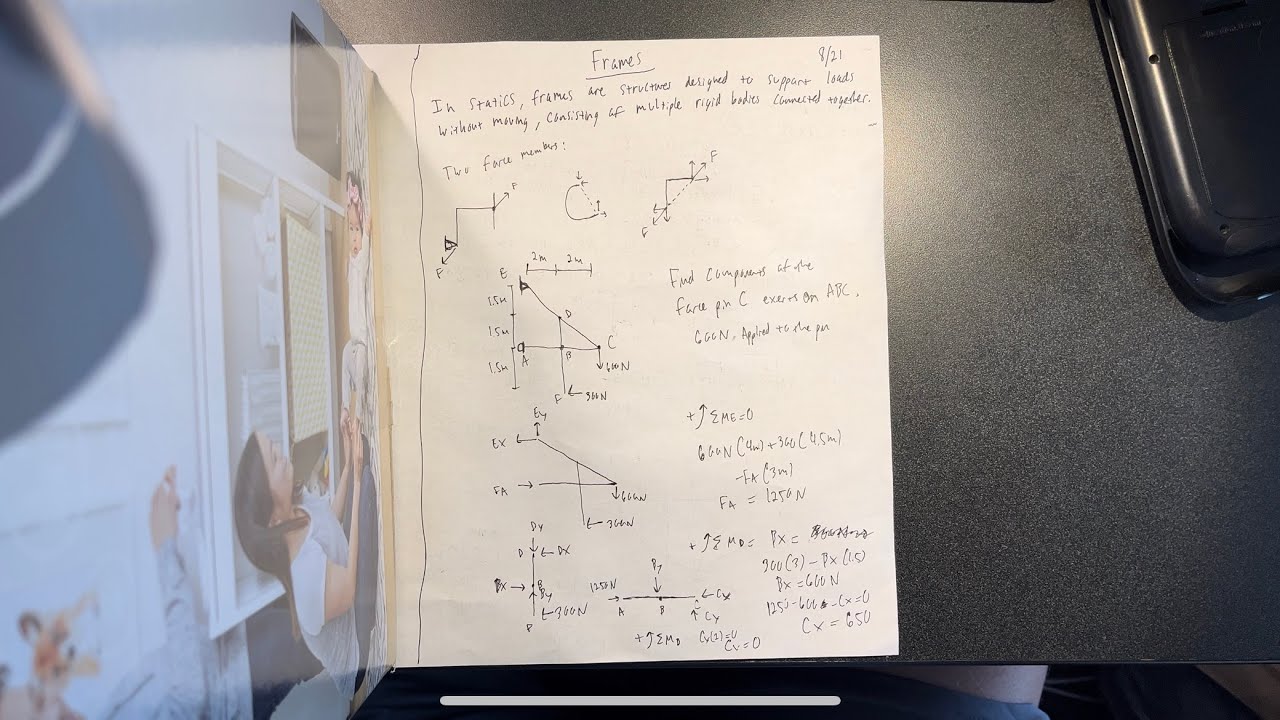 Frames
8/21
In statics, frames are structures designed to support loads
without moving, consisting of multiple rigid bodies connected together.
Two force members:
F
F
F
F
2m 2m
E
1.5m
1.5m
1.5m
D
A
B
C
600N
F
300N
Find components of the
force pin C exerts on ABC.
600N. Applied to the pin
Ey
Ex
FA
600N
300N
+ ΣME=0
600N(4m)+300(4.5m)
-FA(3m)
FA = 1250N
Dy
D
Dx
Bx
B
By
300N
F
1250N
By
A
B
Cx
Cy
+ ΣMD= Bx =
300(3) - Bx(1.5)
Bx=600N
1250-600 -Cx=0
Cx = 650
+ ΣMD Cy(2)=0
Cy=0